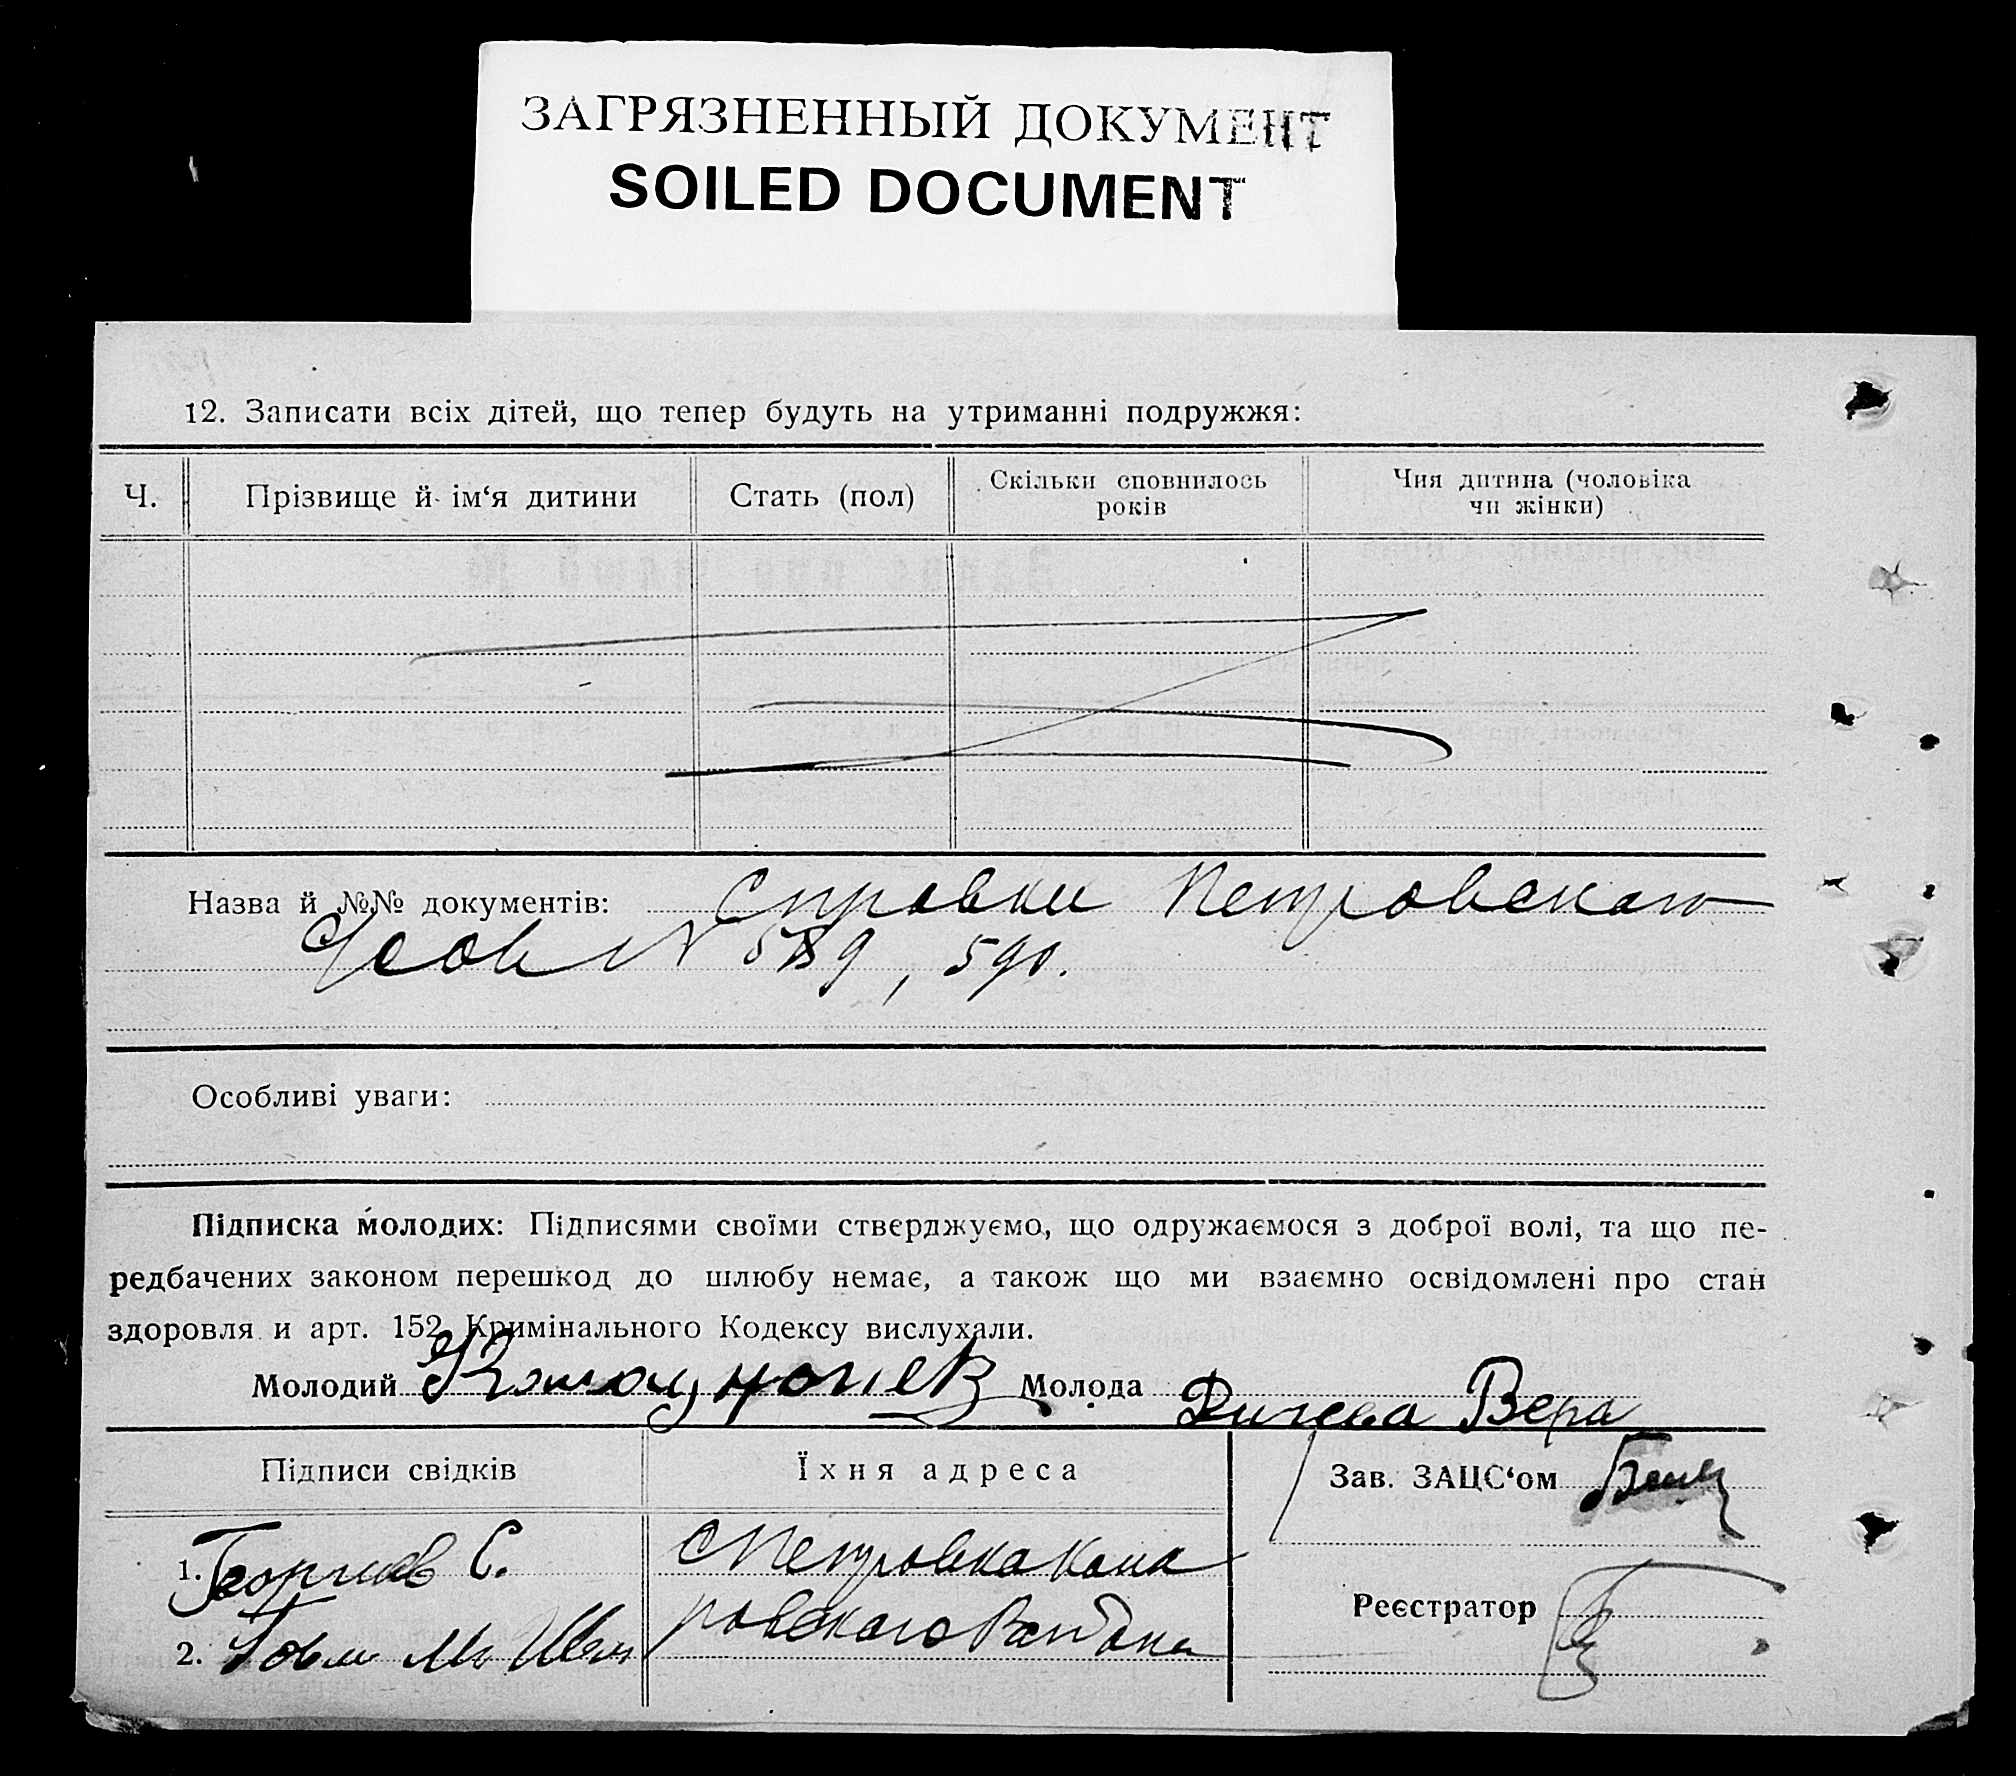 ЗАГРЯЗНЕННЫЙ ДОКУМЕНТ
SOILED DOCUMENT
12. Записати всіх дітей, що тепер будуть на утриманні подружжя:
Ч. Прізвище й ім‘я дитини Стать (пол) Скільки сповнилось років Чия дитина (чоловіка чи жінки)
Назва й №№ документів: Справки Петровского
№ 589, 590.
Особливі уваги:
Підписка молодих: Підписями своїми стверджуємо, що одружаємося з доброї волі, та що пе-
редбачених законом перешкод до шлюбу немає, а також що ми взаємно освідомлені про стан
здоровля и арт. 152 Кримінального Кодексу вислухали.
Молодий Молода Вера
Підписи свідків Їхня адреса Зав. ЗАЦС‘ом
1. Георгиев С. с Петровка Кома
2. ровского Района
Реєстратор